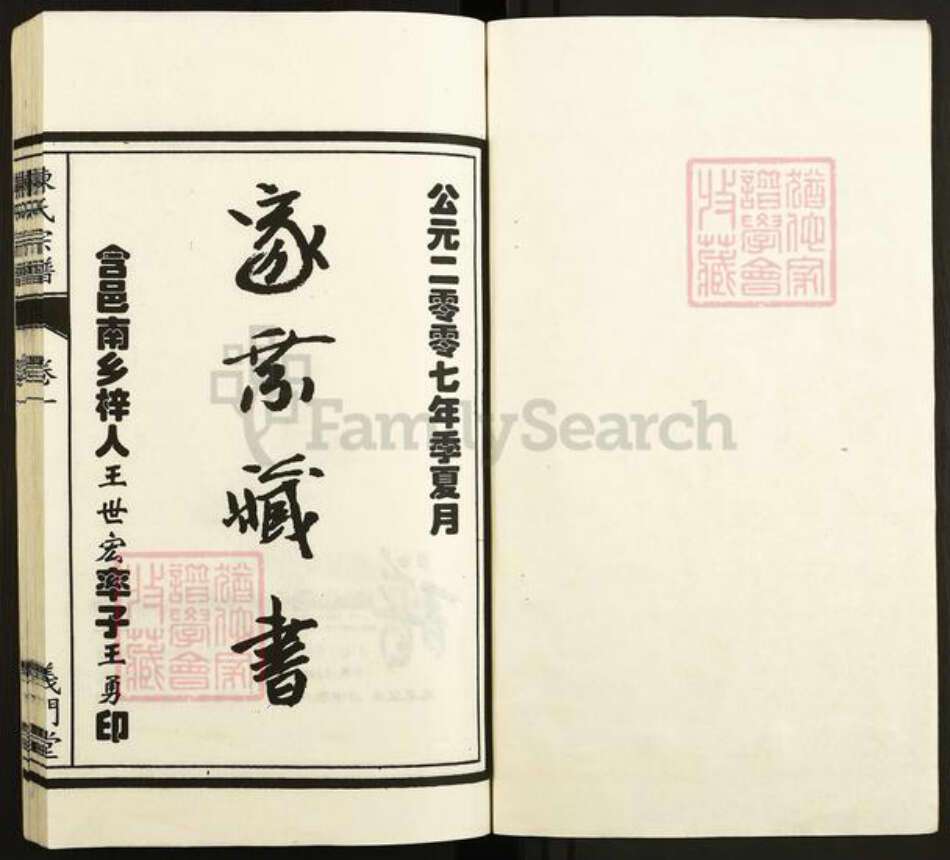 猶他家
譜學會
收藏
公元二零零七年季夏月
家藏書
含邑南乡梓人王世宏率子王勇印
猶他家
譜學會
收藏
陳氏宗譜
卷一
義門堂
FamilySearch